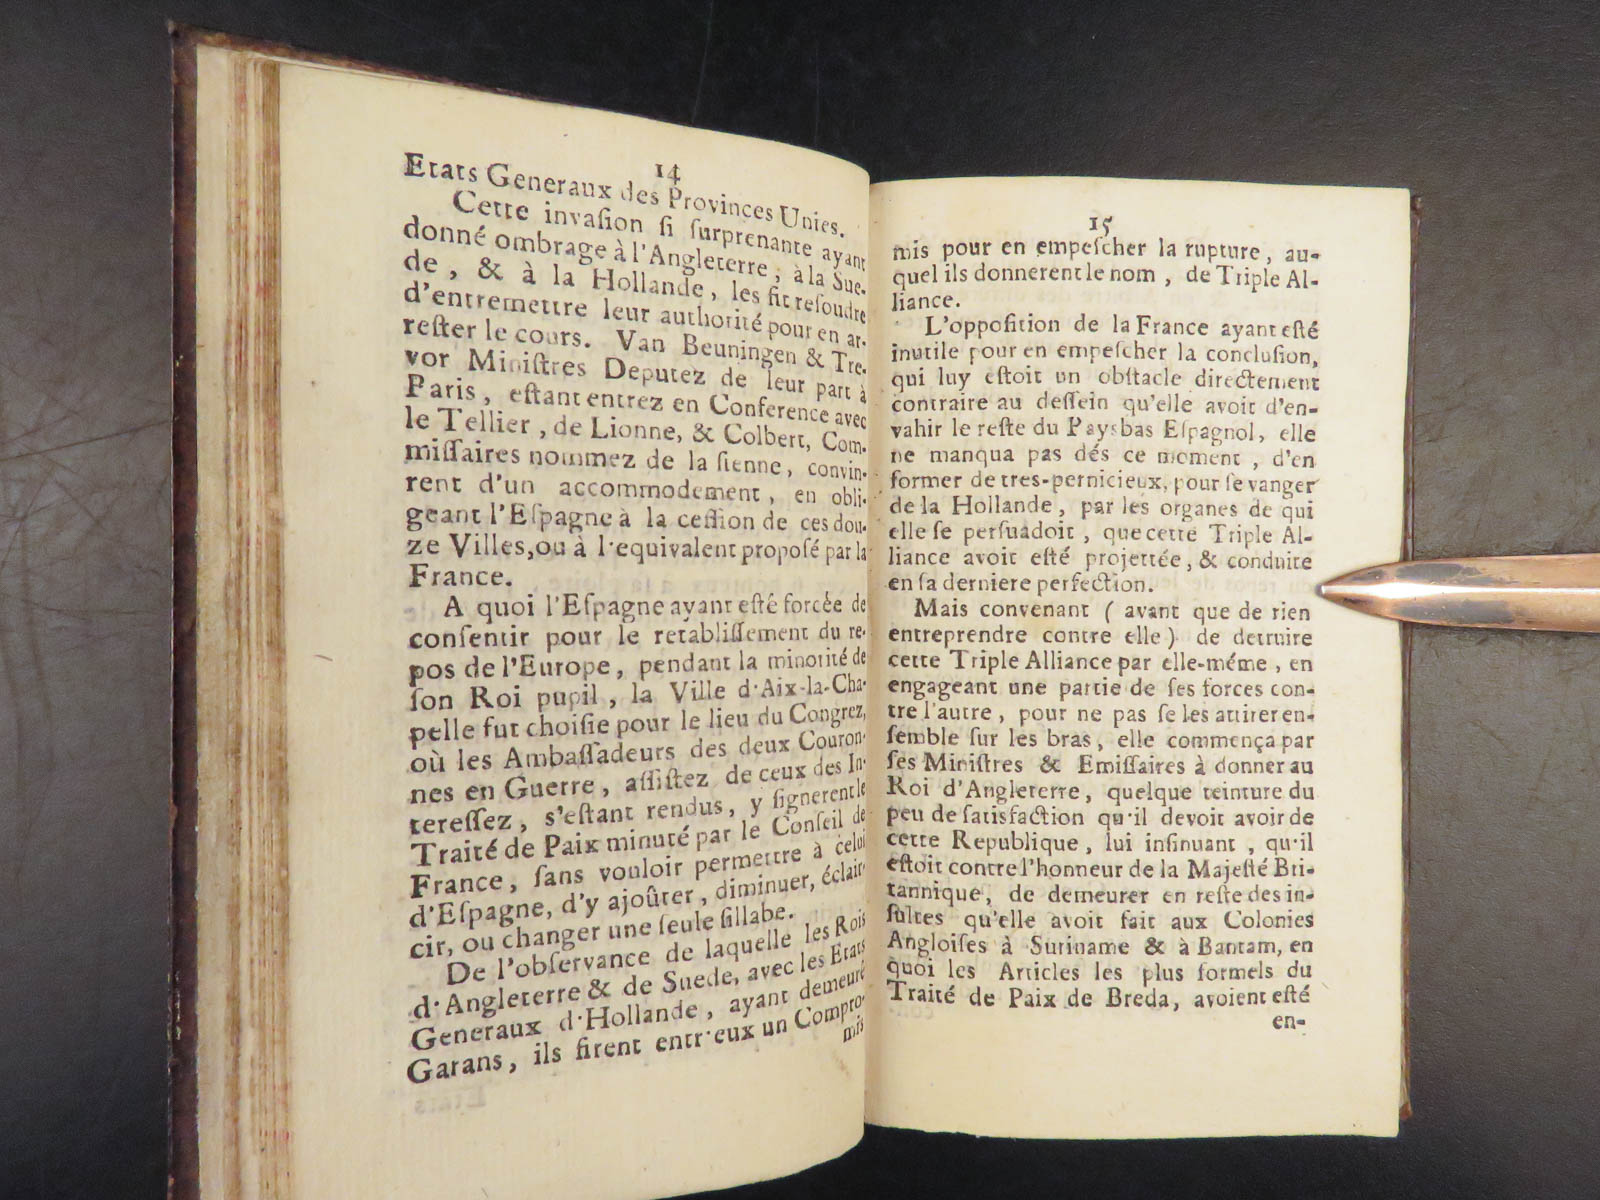 14
Etats Generaux des Provinces Unies.
Cette invaſion ſi ſurprenante ayant
donné ombrage à l'Angleterre, à la Sue-
de, & à la Hollande, les fit reſoudre
d'entremettre leur authorité pour en ar-
reſter le cours. Van Beuningen & Tre-
vor Miniſtres Deputez de leur part à
Paris, eſtant entrez en Conference avec
le Tellier, de Lionne, & Colbert, Com-
miſſaires nommez de la ſienne, convin-
rent d'un accommodement, en obli-
geant l'Eſpagne à la ceſſion de ces dou-
ze Villes, ou à l'equivalent propoſé par la
France.
A quoi l'Eſpagne ayant eſté forcée de
conſentir pour le retabliſſement du re-
pos de l'Europe, pendant la minorité de
ſon Roi pupil, la Ville d'Aix-la-Cha-
pelle fut choiſie pour le lieu du Congrez,
où les Ambaſſadeurs des deux Couron-
nes en Guerre, aſſiſtez de ceux des In-
tereſſez, s'eſtant rendus, y ſignerent le
Traité de Paix minuté par le Conſeil de
France, ſans vouloir permettre à celui
d'Eſpagne, d'y ajoûter, diminuer, éclair-
cir, ou changer une ſeule ſillabe.
De l'obſervance de laquelle les Rois
d'Angleterre & de Suede, avec les Etats
Generaux d'Hollande, ayant demeuré
Garans, ils firent entr'eux un Compro-
mis
15
mis pour en empeſcher la rupture, au-
quel ils donnerent le nom, de Triple Al-
liance.
L'oppoſition de la France ayant eſté
inutile pour en empeſcher la concluſion,
qui luy eſtoit un obſtacle directement
contraire au deſſein qu'elle avoit d'en-
vahir le reſte du Paysbas Eſpagnol, elle
ne manqua pas dés ce moment, d'en
former de tres-pernicieux, pour ſe vanger
de la Hollande, par les organes de qui
elle ſe perſuadoit, que cette Triple Al-
liance avoit eſté projettée, & conduite
en ſa derniere perfection.
Mais convenant (avant que de rien
entreprendre contre elle) de detruire
cette Triple Alliance par elle-méme, en
engageant une partie de ſes forces con-
tre l'autre, pour ne pas ſe les attirer en-
ſemble ſur les bras, elle commença par
ſes Miniſtres & Emiſſaires à donner au
Roi d'Angleterre, quelque teinture du
peu de ſatisfaction qu'il devoit avoir de
cette Republique, lui inſinuant, qu'il
eſtoit contre l'honneur de la Majeſté Bri-
tannique, de demeurer en reſte des in-
ſultes qu'elle avoit fait aux Colonies
Angloiſes à Suriname & à Bantam, en
quoi les Articles les plus formels du
Traité de Paix de Breda, avoient eſté
en-